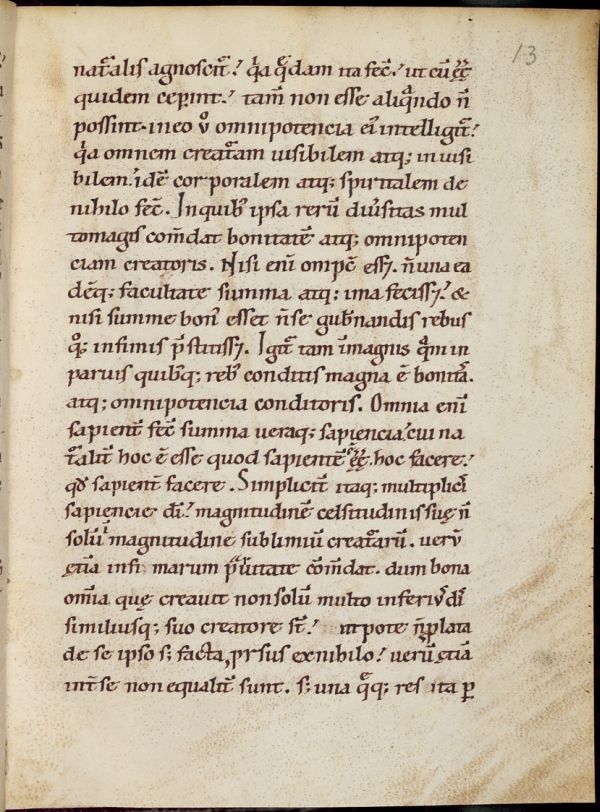 13
nat̃alis agnoscit̃! q̓a q̃dam ita fec̃! ut cũ
quidem ceperint! tam̃ non esse aliq̃ndo ñ
possint. in eo v̊ omnipotencia ei intelligit̃!
q̓a omnem creat̃am uisibilem atq; inuisi
bilem! idẽ corporalem atq; spiritalem de
nihilo fec̃. In quib; ipsa rerũ diuersitas mul
tomagis com̃dat bonitatẽ atq; omnipoten
ciam creatoris. Nisi eni omp̃c ess&. ñ una ea
dẽq; facultate summa atq; ima feciss&. &
nisi summe bon esset ñ se gub̃nandis rebus
q̊; infimis p̃stitiss&. Igit̃ tam in magnis q̃m in
paruis quibq; reb; conditis magna ẽ bonitas.
atq; omnipotencia conditoris. Omnia eni
sapient̃ fec̃ summa ueraq; sapiencia! cui na
t̃alit̃ hoc ẽ esse quod sapientẽ ee̜. hoc facere!
qd̃ sapient̃ facere. Simplicit̃ itaq; multiplicis
sapiencie di! magnitudinẽ celsitudinis sue̜ ñ
solũ magnitudine sublimiũ creat̃arũ. uerũ
e̜tiã infimarum p̃uitate com̃dat. dum bona
om̃ia que̜ creauit non solũ multo inferius di
similiusq; suo creatore st̃! utpote ñ plata
de se ipso s; facta prsus ex nihilo! uerũ e̜tiã
int̃ se non equalit̃ sunt. s; una q̃q; res ita p̱